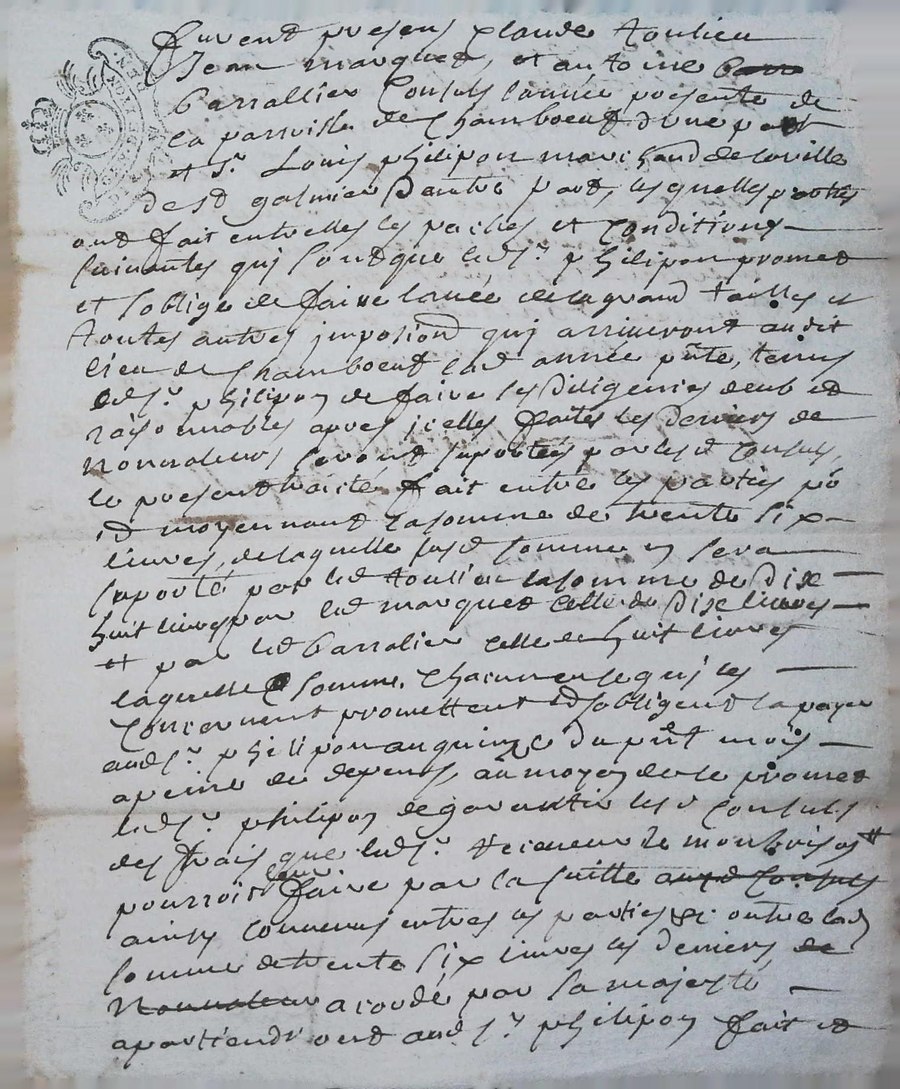 furent presens Claude toulieu
Jean marquet, et antoine barr
barrallier Consuls lannée presente de
la parroisse de Chamboeuf dune part
et Sr. Louis philipon marchand de la ville
de st galmier dautre part, lesquelles parties
ont fait entrelles les paches et Conditions
suivantes qui sont que led. Sr. philipon promet
et soblige de faire la levée de la grand taille et
toutes autres imposions qui arriveront audit
lieu de Chamboeuf lad année pnte, tenus
led Sr. philipon de faire les diligences deub et
raisonnables apres icelles faites les deniers de
nonvaleurs seront suportés par lesd Consuls,
le present traitte fait entre les parties
et moyennant la somme de trente six
livres, de laquelle susd somme en sera
suporté par led toulieu la somme de dix
huit livres par led marquet celle de dix livres
et par led barralier celle de huit livres
laquelle somme, chacun en ce qui les
Concernent promettent et sobligent la payer
aud Sr. philipon au quinze du pnt mois
a peine de depens, au moyen de ce promet
led Sr. philipon de garantir lesd Consuls
des frais que led Sr. receveur de montbrison
pourroit leur faire par la suitte auxd Consuls
ainsy Convenus entre les parties outre lad
somme de trente six livres les deniers de
nonvaleur acordé par sa majesté
apartiendront aud Sr. philipon fait et